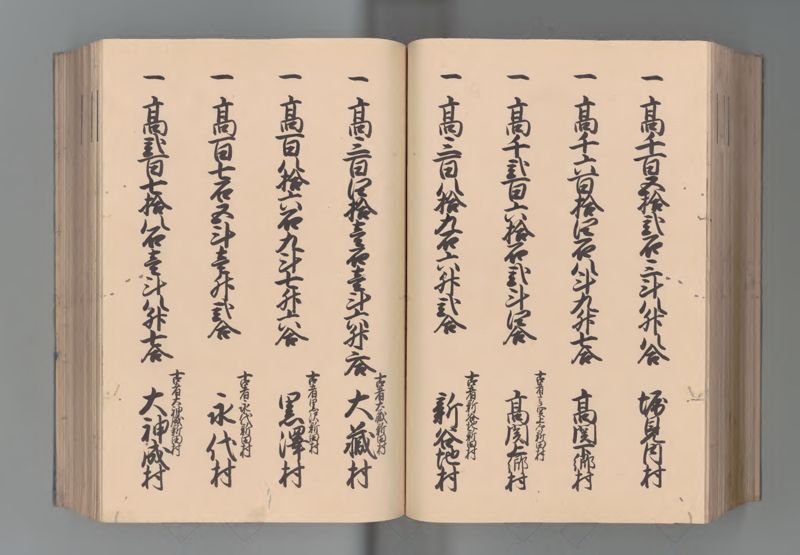 一 高千百五拾弐石三斗八升八合 堀見内村
一 高千六百拾四石八斗九升七合 高関下郷村
一 高千弐百六拾石弐斗四合 古者高関上郷新田村 高関上郷村
一 高三百八拾九石六升弐合 古者新谷地新田村 新谷地村
一 高三百四拾壱石壱斗六升六合 古者大蔵新田村 大蔵村
一 高百八拾六石九斗七升六合 古者黒沢新田村 黒澤村
一 高百七石五斗壱升弐合 古者永代新田村 永代村
一 高弐百七拾八石壱斗八升七合 古者大神成新田村 大神成村